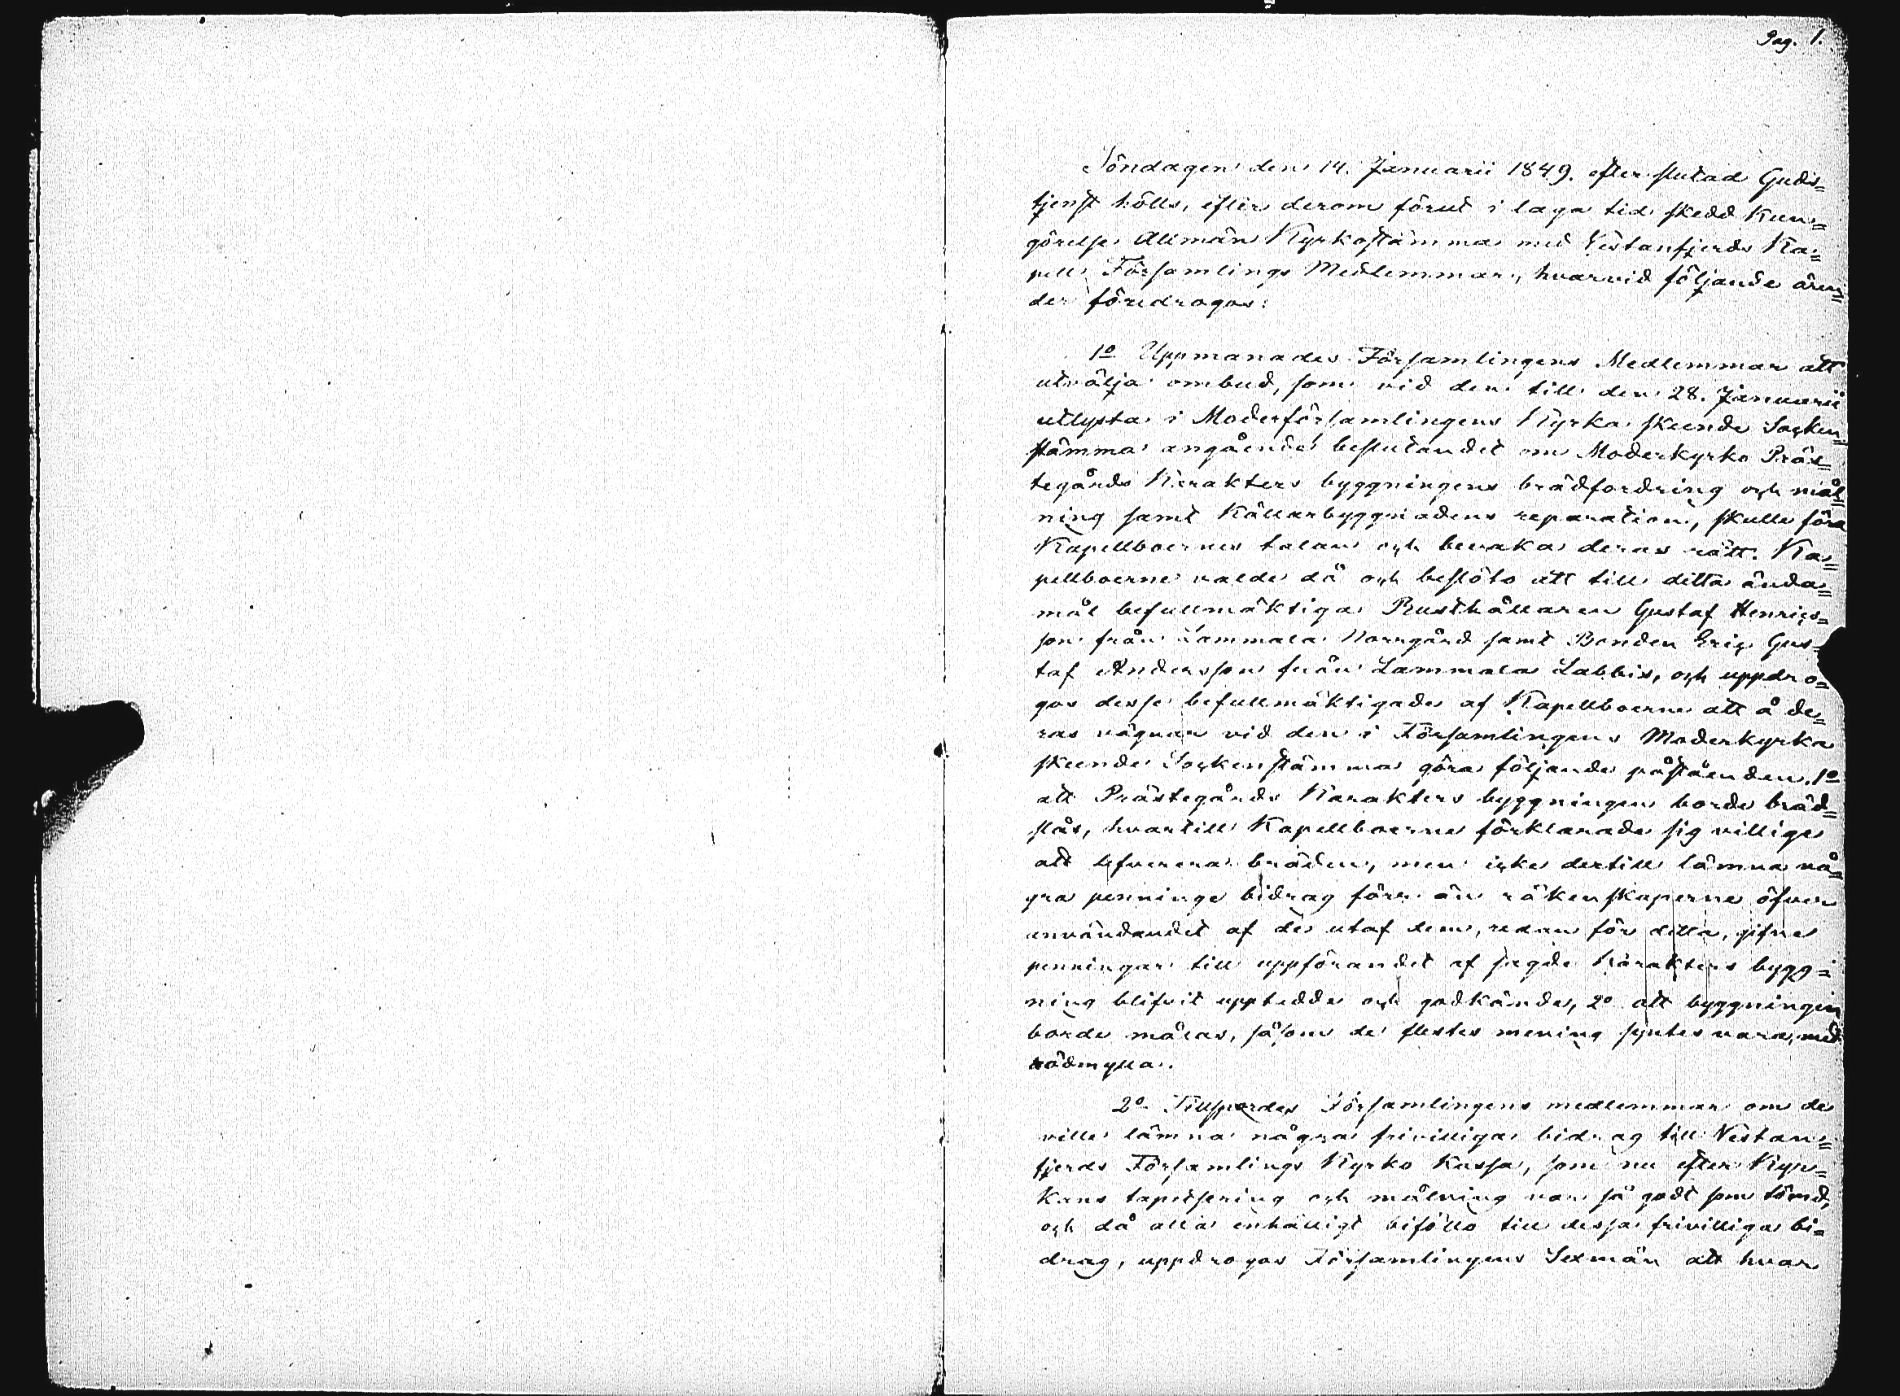 Pag. 1.
Söndagen den 14. Januarii 1849. efter slutad Guds=
tjenst hölls, efter derom förut i laga tid skedd kun=
görelse Allmän Kyrkostämma med Vestanfjerds Ka=
pell Församlings Medlemmar, hvarvid följande ären=
der föredrogos:
1o Uppmanades Församlingens Medlemmar att
utvälja ombud, som vid den till den 28. Januarii
utlysta i Moderförsamlingens Kyrka skeende Socken=
stämma angående beslutandet om Moderkyrko Präs=
tegårds Karakters byggningens brädfordring och mål=
ning samt Källarbyggnadens reparation, skulle föra
Kapellboernes talan och bevaka deras rätt. Ka=
pellboerne valde då och beslöto att till detta ända=
mål befullmäktiga Rusthållaren Gustaf Henrics=
son från Lammala Norrgård samt Bonden Eric Gus=
taf Andersson från Lammala Labbis, och uppdro=
gos desse befullmäktigade af Kapellboerne att å de=
ras vägnar vid den i Församlingens Moderkyrka
skeende Sockenstämma göra följande påståenden. 1o
att Prästegårds Karakters byggningen borde bräd=
slås, hvartill Kapellboerne förklarade sig villige
att lefverera bräden, men icke dertill lämna nå=
gra penninge bidrag förr än räkenskaperne öfver
användandet af de utaf dem, redan för detta, gifne
penningar till uppförandet af sagde karakters bygg=
ning blifvit uppredde och godkände, 2o att byggningen
borde målas, såsom de flestes mening syntes vara, med
rödmylla.
2o Tillspordes Församlingens medlemmar om de
ville lämna några frivilliga bidrag till Vestan=
fjerds Församlings Kyrko Kassa, som nu efter Kyr=
kans tapitsering och målning var så godt som tömd,
och då alla enhälligt biföllo till dessa frivilliga bi=
drag, uppdrogos Församlingens Sexmän att hvar